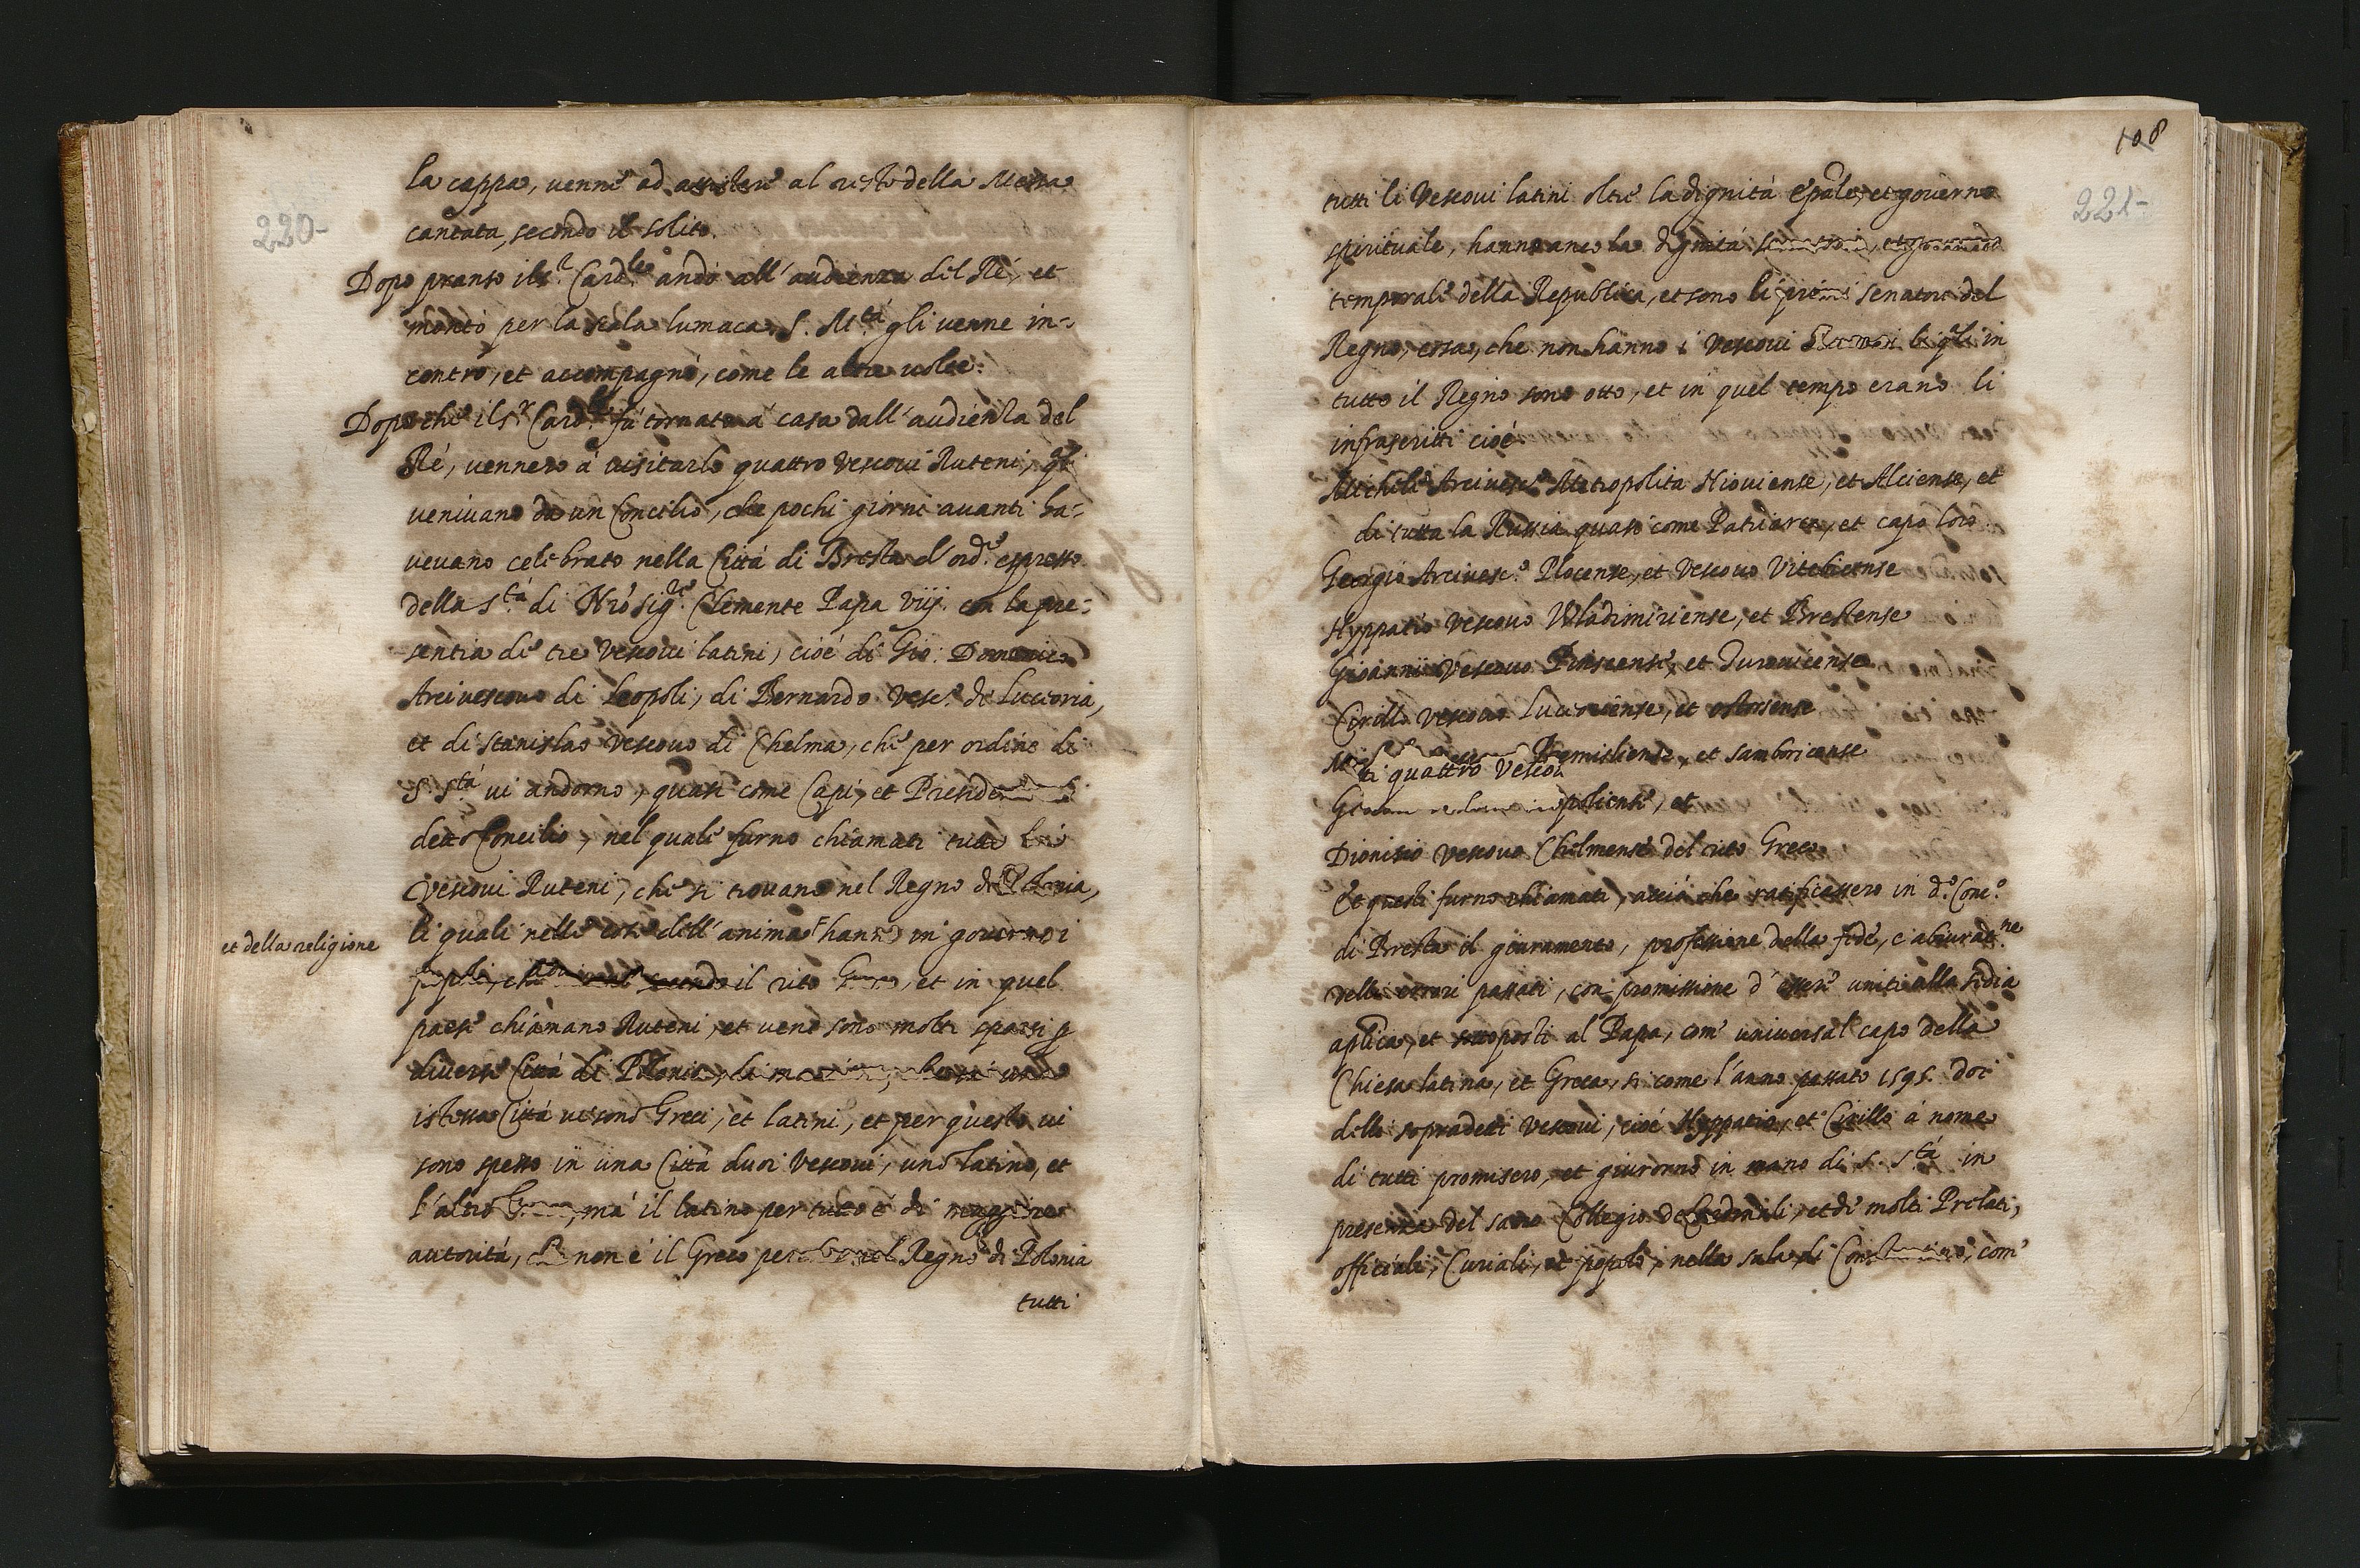 220-
la cappa, venne ad assistere al resto della Messa
cantata, secondo il solito.
Dopo pranso il s.r Card.le andò all'audienza del Ré, et
montò per la scala lumaca, S. M.tà gli venne in-
contro, et accompagnò, come le altre volte.
Dopo che il s.r Card.le fù tornato a casa dall'audienza del
Ré, vennero à visitarlo quattro Vescovi Ruteni, q.li
venivano da un Concilio, che pochi giorni avanti ha-
vevano celebrato nella Città di Bresta d'ord.e espresso
della S.tà di Nrõ Sig.re Clemente Papa viij. con la pre-
sentia di tre Vescovi latini, cioé di Gio: Domenico
Arcivescovo di Leopoli, di Bernardo Vesc.o di Luceoria,
et di Stanislao Vescovo di Chelma, che per ordine di
S. S.tà vi andorno, quasi come Capi, et
detto Concilio, nel quale furno chiamati tutti li
Vescovi Ruteni, che si trovano nel Regno di Polonia,
et della religione
li quali nelle cose dell'anima hanno in governo i
popoli, che secondo il rito et in quel
paese chiamano Ruteni, et vene sono molti sparsi p
diverse Città di Polonia,
istessa Città vi sono Greci, et latini, et per questo vi
sono spesso in una Città duoi Vescovi, uno latino, et
l'altro má il latino per tutto é di maggiore
autorità, non é il Greco Regno di Polonia
tutti
108
221-
tutti li Vescovi latini oltre la dignità Epãle, et governo
spirituale, hanno anco la dignità
temporale della Republica, et sono li primi senatori del
Regno, cosa, che non hanno i Vescovi li q.li in
tutto il Regno sono otto, et in quel tempo erano li
infrascritti cioé
Michele Arcivesc.o Metropolita Kioviense, et Alciense, et
di tutta la Russia quasi come Patriarca, et capo loro
Georgio Arcivesc.o Plocense, et Vescovo Vitebicense
Hyppatio Vescovo Wladimiriense, et Brestense
Gioanni Vescovo Pinscense, et Turovicense
Cirillo Vescovo Luceoriense, et ostorsense
Premisliense, et samboricense
li quattro Vescov
poliense, et
Dionisio Vescovo Chelmense del rito Greco
Et questi furno chiamati, acciò che ratificassero in d.o Conc.o
di Bresta il giuramento, professione della fede, e abiurat.ne
delli errori passati, con promissione d'essere uniti alla sedia
aplica, et sottoposti al Papa, com' universal capo della
Chiesa latina, et Greca, si come l'anno passato 1595. doi
delli sopradetti Vescovi, cioé Hyppatio, et Cirillo à nome
di tutti promisero, et giurorno in mano di S. S.tà in
presenza del sacro Collegio de Cardinali, et di molti Prelati,
officiali, Curiali, et popolo, nella sala di Constantino, com'